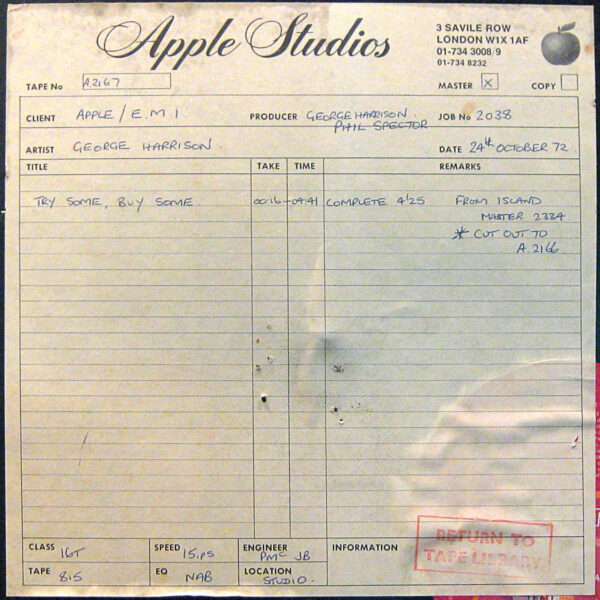 Apple Studios
3 SAVILE ROW
LONDON W1X 1AF
01-734 3008/9
01-734 8232
TAPE No A.2167 MASTER X COPY
CLIENT APPLE / E.M.I PRODUCER GEORGE HARRISON. JOB No 2038
PHIL SPECTOR
ARTIST GEORGE HARRISON. DATE 24th OCTOBER 72.
TITLE TAKE TIME REMARKS
TRY SOME, BUY SOME. 00:16-04:41 COMPLETE 4'25 FROM ISLAND
MASTER 2334
* CUT OUT TO
A.2166
RETURN TO
TAPE LIBRARY
CLASS 16T SPEED 15.ips ENGINEER PMC JB INFORMATION
TAPE 815 EQ NAB LOCATION STUDIO.